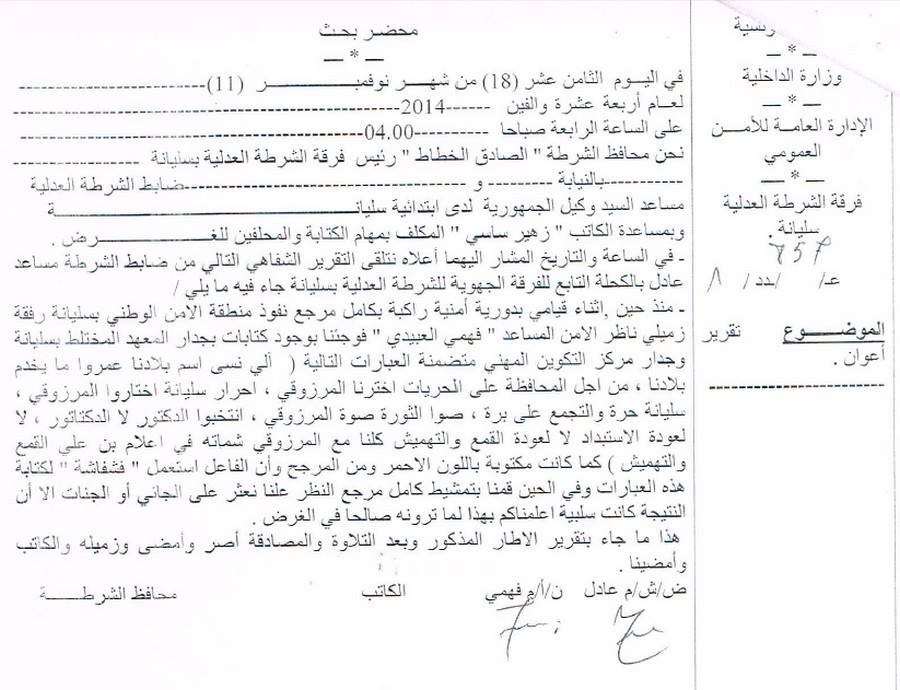 محضر بحث
— * —
في اليوم الثامن عشر (18) من شهر نوفمبر (11)
لعام أربعة عشرة والفين ------2014
على الساعة الرابعة صباحا ----------04.00
نحن محافظ الشرطة " الصادق الخطاط " رئيس فرقة الشرطة العدلية بسليانة
-----------بالنيابة ---------- و ----------ضابط الشرطة العدلية
مساعد السيد وكيل الجمهورية لدى ابتدائية سليانة
وبمساعدة الكاتب " زهير ساسي " المكلف بمهام الكتابة والمحلفين للغرض .
ـ في الساعة والتاريخ المشار اليهما أعلاه نتلقى التقرير الشفاهي التالي من ضابط الشرطة مساعد
عادل بالكحلة التابع للفرقة الجهوية للشرطة العدلية بسليانة جاء فيه ما يلي /
ـ منذ حين ,اثناء قيامي بدورية أمنية راكبة بكامل مرجع نفوذ منطقة الامن الوطني بسليانة رفقة
زميلي ناظر الامن المساعد " فهمي العبيدي " فوجئنا بوجود كتابات بجدار المعهد المختلط بسليانة
وجدار مركز التكوين المهني متضمنة العبارات التالية ( ألي نسى اسم بلادنا عمروا ما يخدم
بلادنا ، من اجل المحافظة على الحريات اخترنا المرزوقي ، احرار سليانة اختاروا المرزوقي ،
سليانة حرة والتجمع على برة ، صوا الثورة صوة المرزوقي ، انتخبوا الدكتور لا الدكتاتور ، لا
لعودة الاستبداد لا لعودة القمع والتهميش كلنا مع المرزوقي شماته في اعلام بن علي القمع
والتهميش ) كما كانت مكتوبة باللون الاحمر ومن المرجح وأن الفاعل استعمل " فشفاشة " لكتابة
هذه العبارات وفي الحين قمنا بتمشيط كامل مرجع النظر علنا نعثر على الجاني أو الجنات الا أن
النتيجة كانت سلبية اعلمناكم بهذا لما ترونه صالحا في الغرض .
هذا ما جاء بتقرير الاطار المذكور وبعد التلاوة والمصادقة أصر وأمضى وزميله والكاتب
وأمضينا .
ض/ش/م عادل ن/أ/م فهمي الكاتب محافظ الشرطة
— * —
وزارة الداخلية
— * —
الإدارة العامة للأمن
العمومي
— * —
فرقة الشرطة العدلية
سليانة .
عـ/ /دد/
الموضوع تقرير
أعوان .